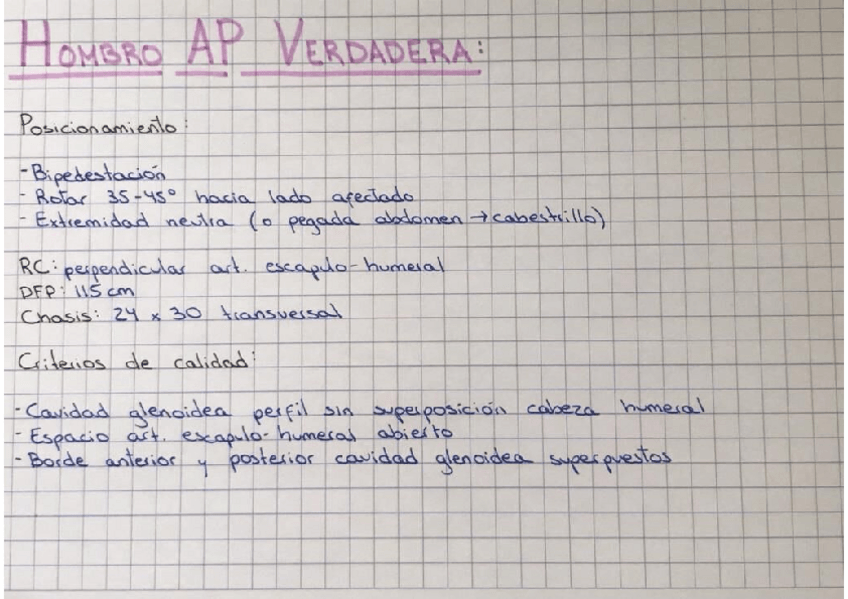 HOMBRO AP VERDADERA:
Posicionamiento:
- Bipedestación
- Rotar 35-45° hacia lado afectado
- Extremidad neutra (o pegada abdomen → cabestrillo)
RC: perpendicular art. escapulo-humeral
DFP: 115 cm
Chasis: 24 x 30 transversal
Criterios de calidad:
- Cavidad glenoidea perfil sin superposición cabeza humeral
- Espacio art. escapulo-humeral abierto
- Borde anterior y posterior cavidad glenoidea superpuestos